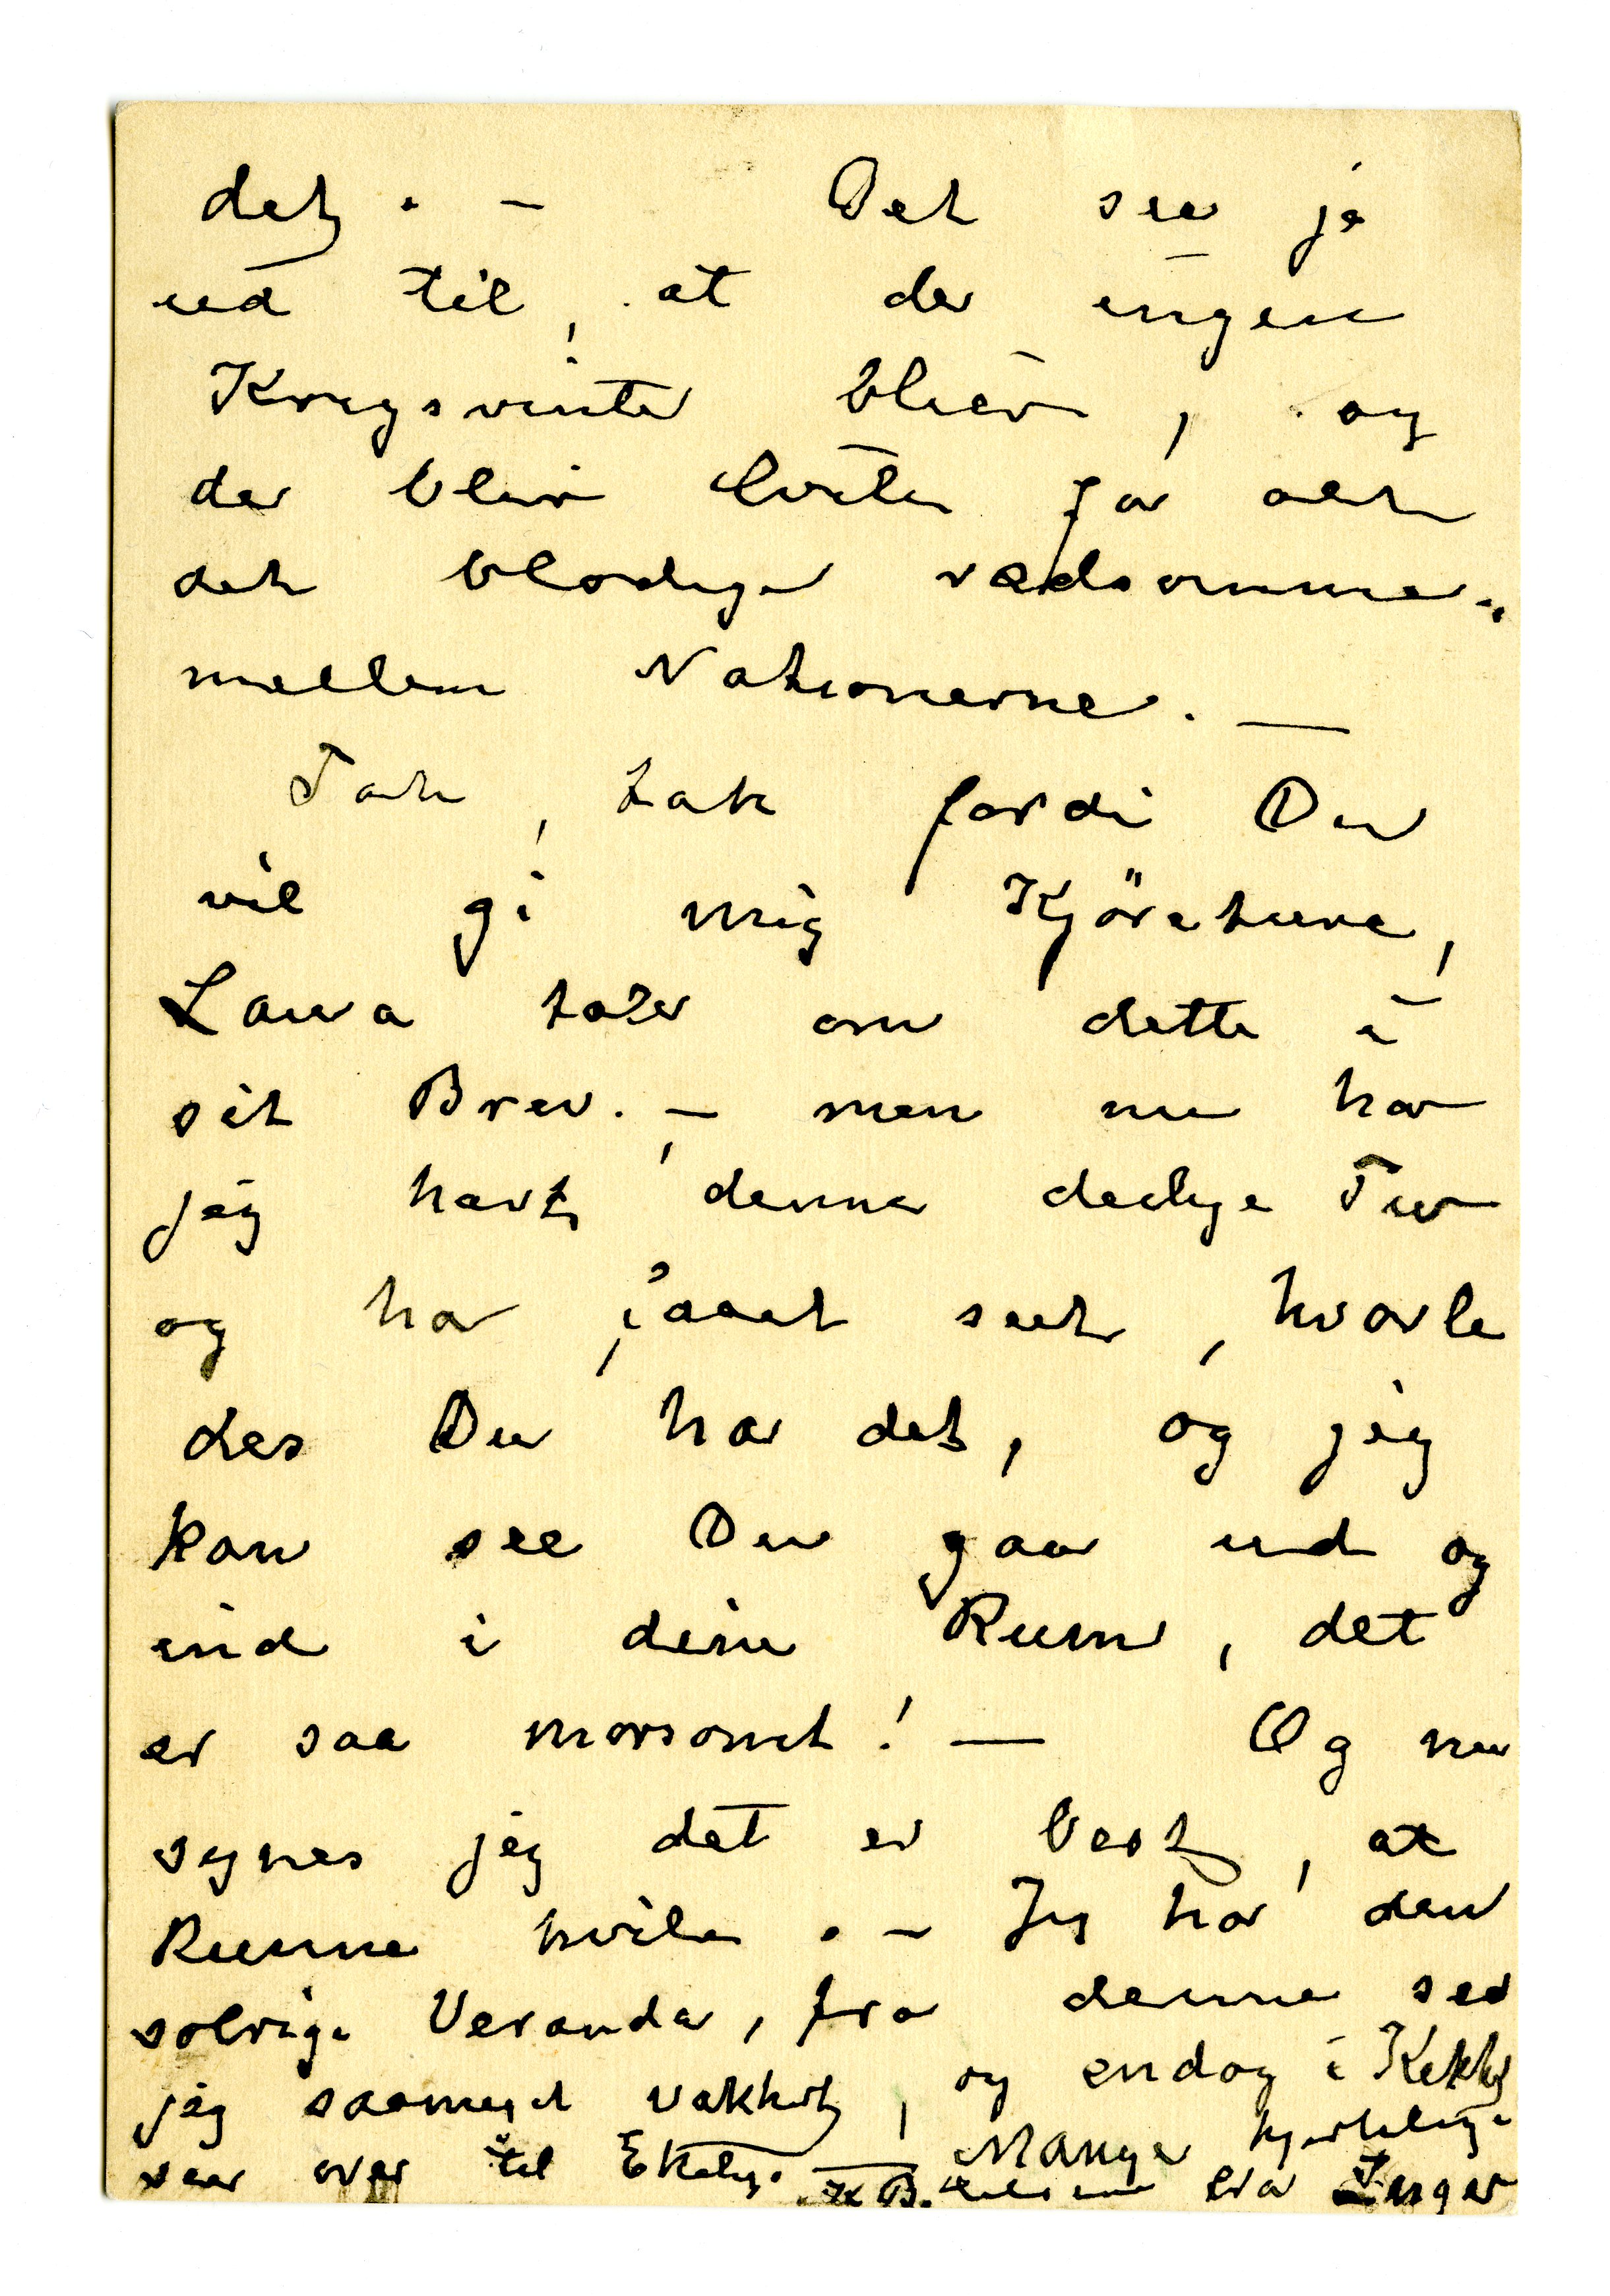 det. – Det seer ja
ud til, at der ingen
Krigsvinter bliver, og
der bliver hvile for alt
det blodige rædsomme
mellem Nationerne. –
Tak, tak fordi Du
vil gi mig Kjöreture,
Laura taler om dette i
sit Brev. – men nu har
jeg havt denne deilige Tur
og har faaet seet, hvorle
des Du har det, og jeg
kan see Du gaar ud og
ind i dine Rum, det
er saa morsomt! – Og nu
synes jeg det er best, at
kunne hvile. – Jeg har den
solrige Veranda, fra denne seer
jeg saameget vakkert, og endog i Kikkert
seer over til Ekely. – Mange hjertelige
Hilsener fra Inger